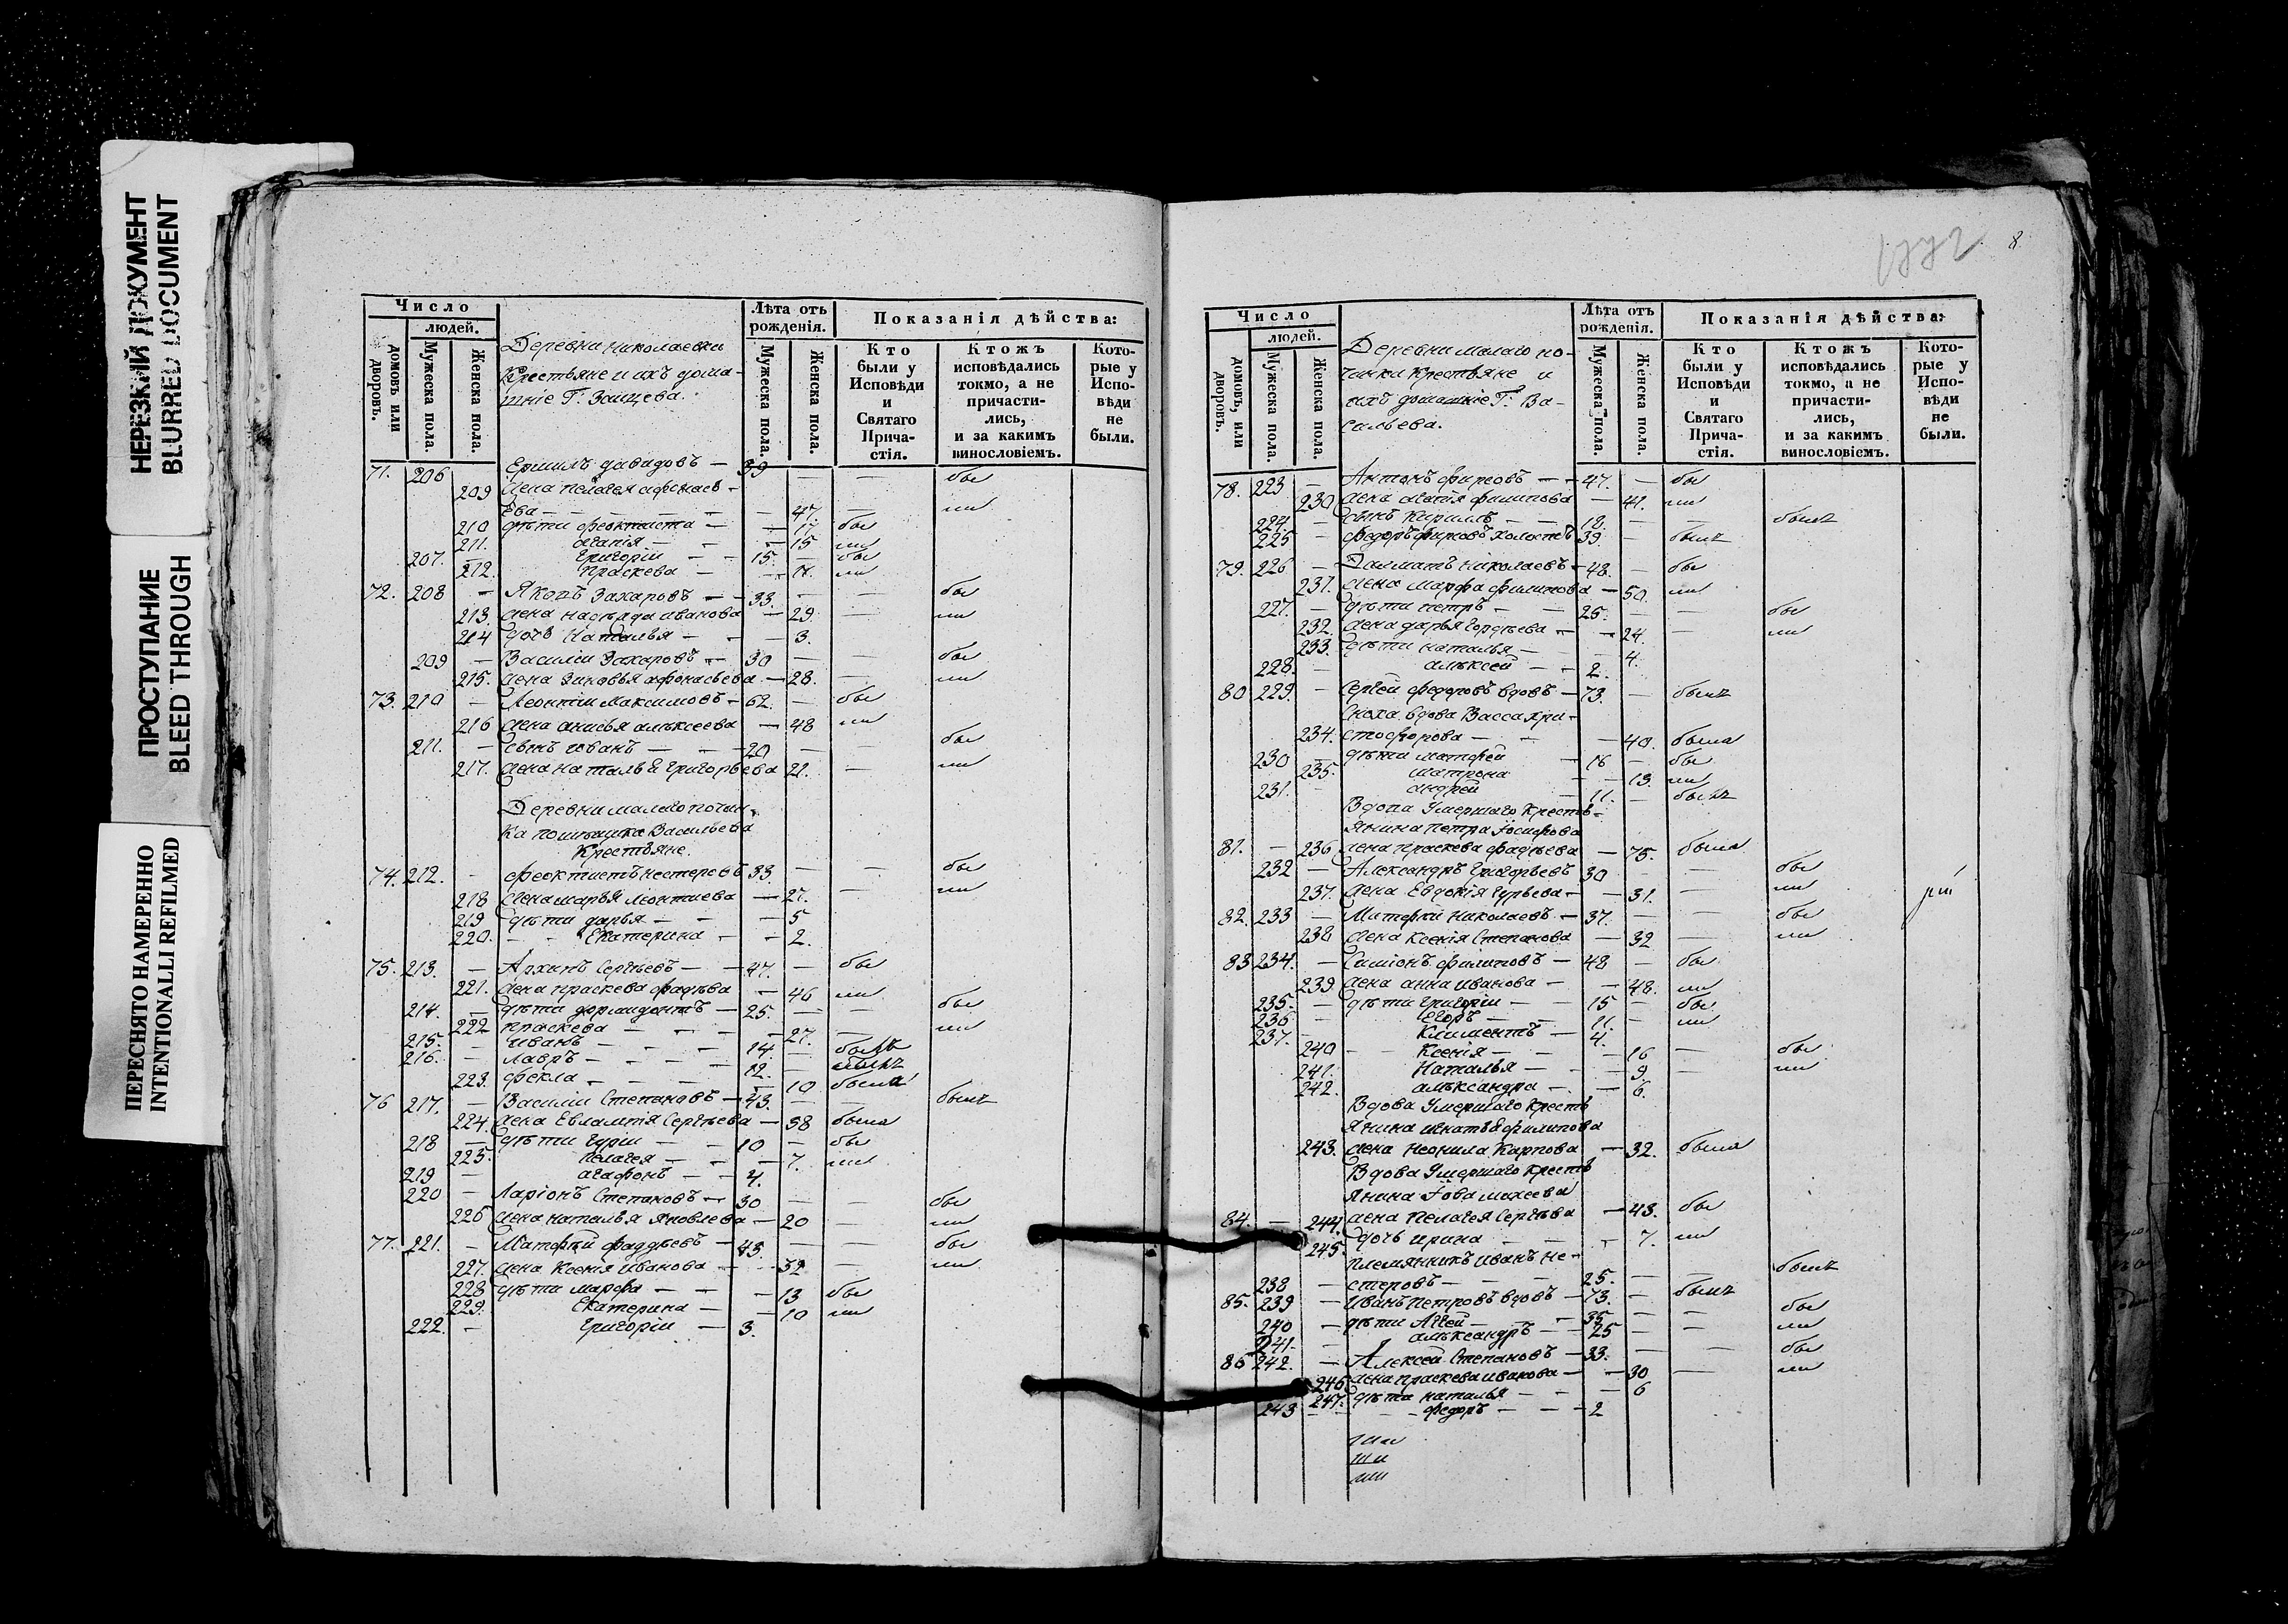 НЕРЕЗКИЙ ДОКУМЕНТ
BLURRED DOCUMENT
ПРОСТУПАНИЕ
BLEED THROUGH
ПЕРЕСНЯТО НАМЕРЕННО
INTENTIONALLI REFILMED
Число
людей.
домовъ или дворовъ.
Мужеска пола.
Женска пола.
Деревни Николаевки
Крестьяне и ихъ дома-
шніе Г: Зайцева.
Лѣта отъ рожденія.
Мужеска пола.
Женска пола.
Показанія дѣйства:
Кто были у Исповѣди и Святаго Прича-стія.
Ктожъ исповѣдались токмо, а не причасти-лись, и за какимъ винословіемъ.
Кото-рые у Испо-вѣди не были.
71. 206 Ермилъ давыдовъ — 39 — — бы
209 жена пелагея афонась-
ева — — — — 47 — ли
210 дѣти феоктиста — — 17 бы
211. агапія — — 15 ли
207. — Григоріи — 15. — бы
212. Праскева — — 11. ли
72. 208 — Яковъ Захаровъ — 33. — — бы
213. жена надѣжда иванова — 29. — ли
214 дочь Наталья — — 3.
209 — Василіи Захаровъ — 30 — — бы
215. жена Зиновья афонасьева — 28. — ли
73. 210 — Леонтіи Максимовъ — 62. — бы
216 жена анисья алѣксеева — 48 ли
211. — сынъ иванъ — — 20 — бы
217. жена наталья григорьева 21. — ли
Деревни малаго почин-
ка помѣщика Васильева
Крестьяне.
74. 212. — феоктистъ нестеровъ 33 — — бы
218 жена марья леонтиева — 27. — ли
219 дѣти дарья — — 5
220. — Екатерина — — 2.
75. 213. — Архипъ Сергѣевъ — 47. — бы
221. жена праскева фадѣева — 46 ли
214. — дѣти дормидонтъ — 25. — — бы
222 праскева — — 27. — ли
215. — иванъ — — 14. — былъ
216. — лавръ — — 12. — былъ
223. фекла — — 10 была
76 217. — Василіи Степановъ — 43. — — былъ
224. жена Евлампія Сергѣева — 38 была
218 — дѣти гуріи — 10 — бы
225. пелагея — — 7. ли
219 — агафонъ — 4.
220 — Ларіонъ Степановъ — 30 — — бы
226 жена наталья яковлева — 20 — ли
77. 221. — Матфѣй фаддѣевъ — 43. — — бы
227. жена Ксенія иванова — 32 — ли
228 дѣти марфа — — 13 бы
229. Екатерина — — 10 ли
222. — Григоріи — 3.
8.
Число
людей.
домовъ, или дворовъ.
Мужеска пола.
Женска пола.
Деревни малаго по-
чинка Крестьяне и
ихъ домашніе Г: Ва-
сильева.
Лѣта отъ рожденія.
Мужеска пола.
Женска пола.
Показанія дѣйства:
Кто были у Исповѣди и Святаго Прича-стія.
Ктожъ исповѣдались токмо, а не причасти-лись, и за какимъ винословіемъ.
Кото-рые у Испо-вѣди не были.
78. 223 — Антонъ фирсовъ — 47. — бы
230 жена агапія филипова — 41. ли
224. — сынъ Кирилъ — 12. — — былъ
225 — федоръ фирсовъ холостъ 39. — былъ
79. 226 — Далматъ Николаевъ — 48. — бы
231. жена марфа филипова — 50. ли
227. — дѣти петръ — 25. — бы
232. жена дарья гордѣева — 24. — ли
233. дѣти наталья — — 4.
228. — алѣксей — 2.
80 229. — Сергей федоровъ вдовъ — 73. — былъ
Сноха вдова Васса хри-
234. стофорова — — 40. была
230 — дѣти матфей — 16 — бы
235. матрона — 13. ли
231. — андрей — 11. — былъ
Вдова Умершаго Кресть-
янина петра
81. — 236 жена праскева фадѣева — 75. была
232 — Александръ Григорьевъ 30 — — бы
237. жена Евдокія гурьева — 31. — ли
82. 233 — Матфѣй николаевъ — 37. — — бы
238 жена ксенія Степанова — 32 — ли
83 234. — Симіонъ филиповъ — 48 — бы
239. жена анна иванова — 48. ли
235. — дѣти Григоріи — 15 — бы
236 — Егоръ — 11. — ли
237. — Климентъ — 4.
240 — Ксенія — — 16 — бы
241. Наталья — — 9. — ли
242. алѣксандра — — 6.
Вдова Умершаго Кресть
янина игнатья филипова
243. жена неонила Карпова — 32. была
Вдова Умершаго Кресть
янина Іова
84. — 244. жена пелагея Сергѣева — 43. бы
245. дочь ирина — — 7. ли
племянникъ иванъ не-
238 — стеровъ — — 25. — — былъ
85. 239 — иванъ петровъ вдовъ — 73. — былъ
240 — дѣти — 35 — — бы
241. — алѣксандръ — 25 — — ли
86 242. — Алексей Степановъ — 33. — — бы
246 жена праскева иванова — 30 — ли
247. дѣти наталья — — 6
243 — федоръ — 2